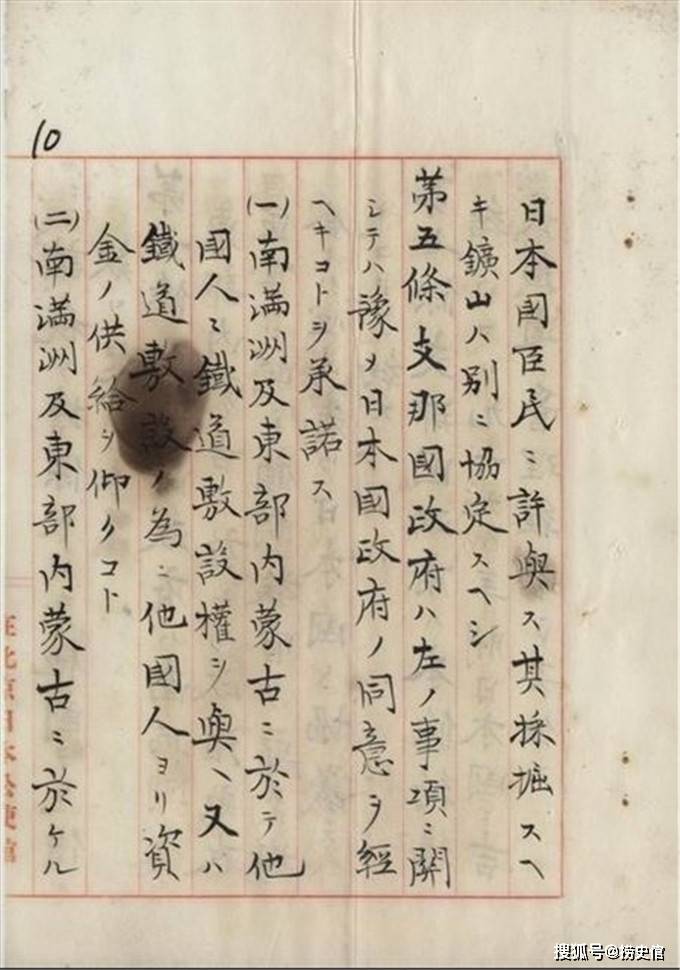 10
日本國臣民ニ許與ス其採掘スヘ
キ鑛山ハ別ニ協定スヘシ
第五條支那國政府ハ左ノ事項ニ關
シテハ豫メ日本國政府ノ同意ヲ經
ヘキコトヲ承諾ス
(一)南満洲及東部内蒙古ニ於テ他
國人ニ鐵道敷設權ヲ與ヘ又ハ
鐵道敷設ノ為ニ他國人ヨリ資
金ノ供給ヲ仰クコト
(二)南満洲及東部内蒙古ニ於ケル
在北京日本公使館
搜狐号@捞史官